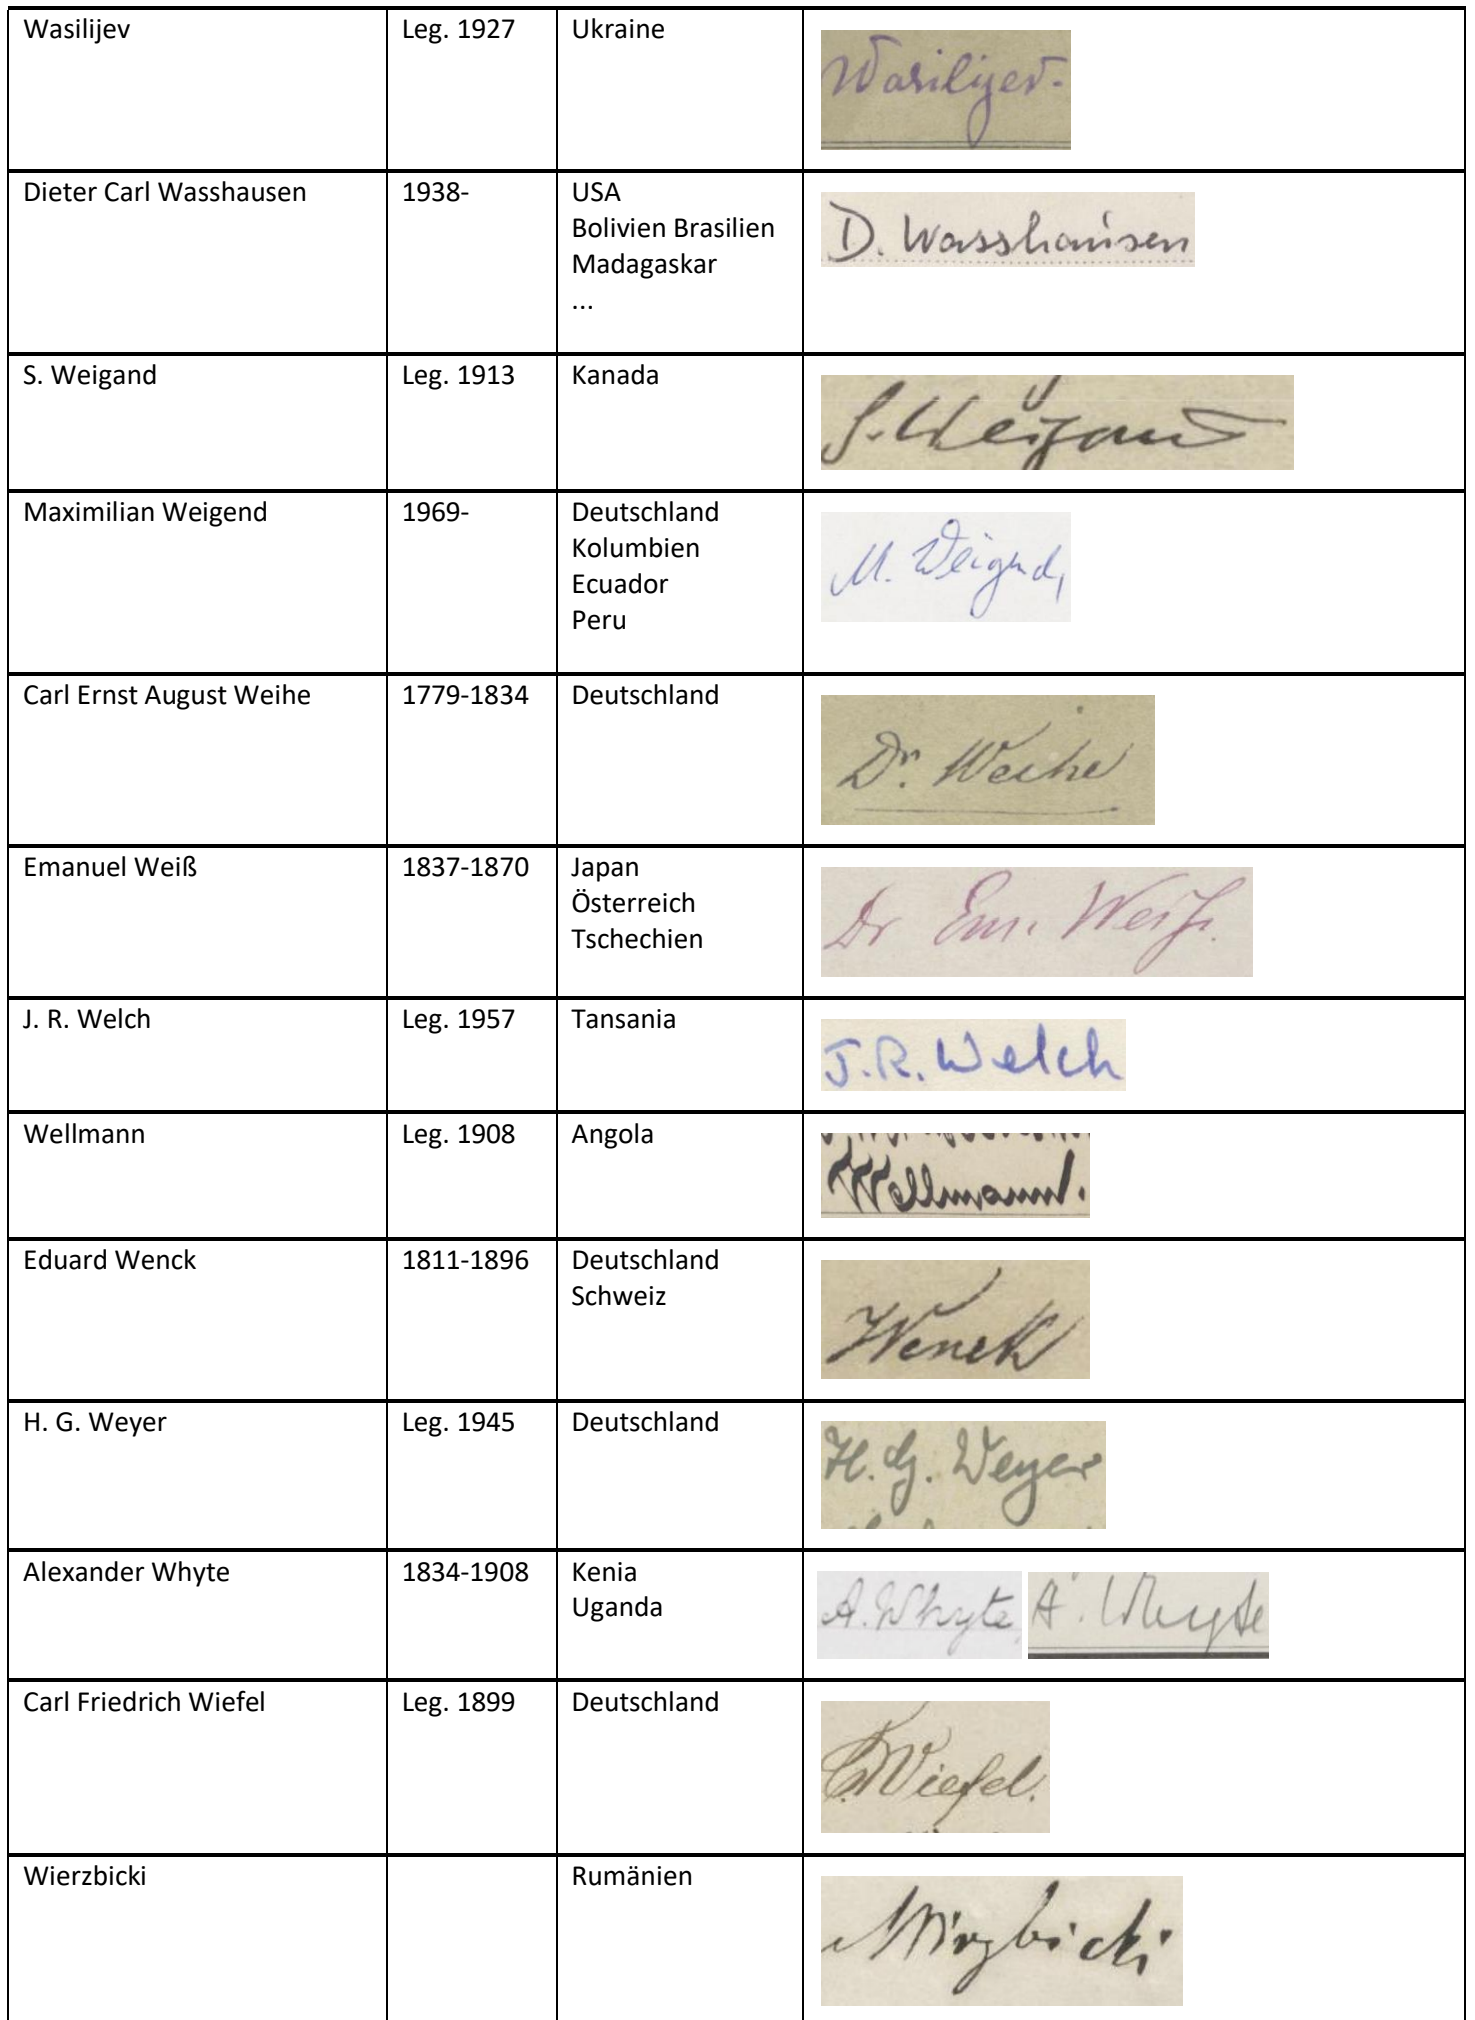 Wasilijev Leg. 1927 Ukraine Wasilijev.
Dieter Carl Wasshausen 1938- USA D. Wasshausen
Bolivien Brasilien
Madagaskar
...
S. Weigand Leg. 1913 Kanada S. Weigand
Maximilian Weigend 1969- Deutschland M. Weigend,
Kolumbien
Ecuador
Peru
Carl Ernst August Weihe 1779-1834 Deutschland Dr. Weihe
Emanuel Weiß 1837-1870 Japan Dr Em. Weiß.
Österreich
Tschechien
J. R. Welch Leg. 1957 Tansania J.R. Welch
Wellmann Leg. 1908 Angola Wellmann.
Eduard Wenck 1811-1896 Deutschland Wenck
Schweiz
H. G. Weyer Leg. 1945 Deutschland H. G. Weyer
Alexander Whyte 1834-1908 Kenia A. Whyte, A. Whyte
Uganda
Carl Friedrich Wiefel Leg. 1899 Deutschland C. Wiefel.
Wierzbicki Rumänien Wirzbicki